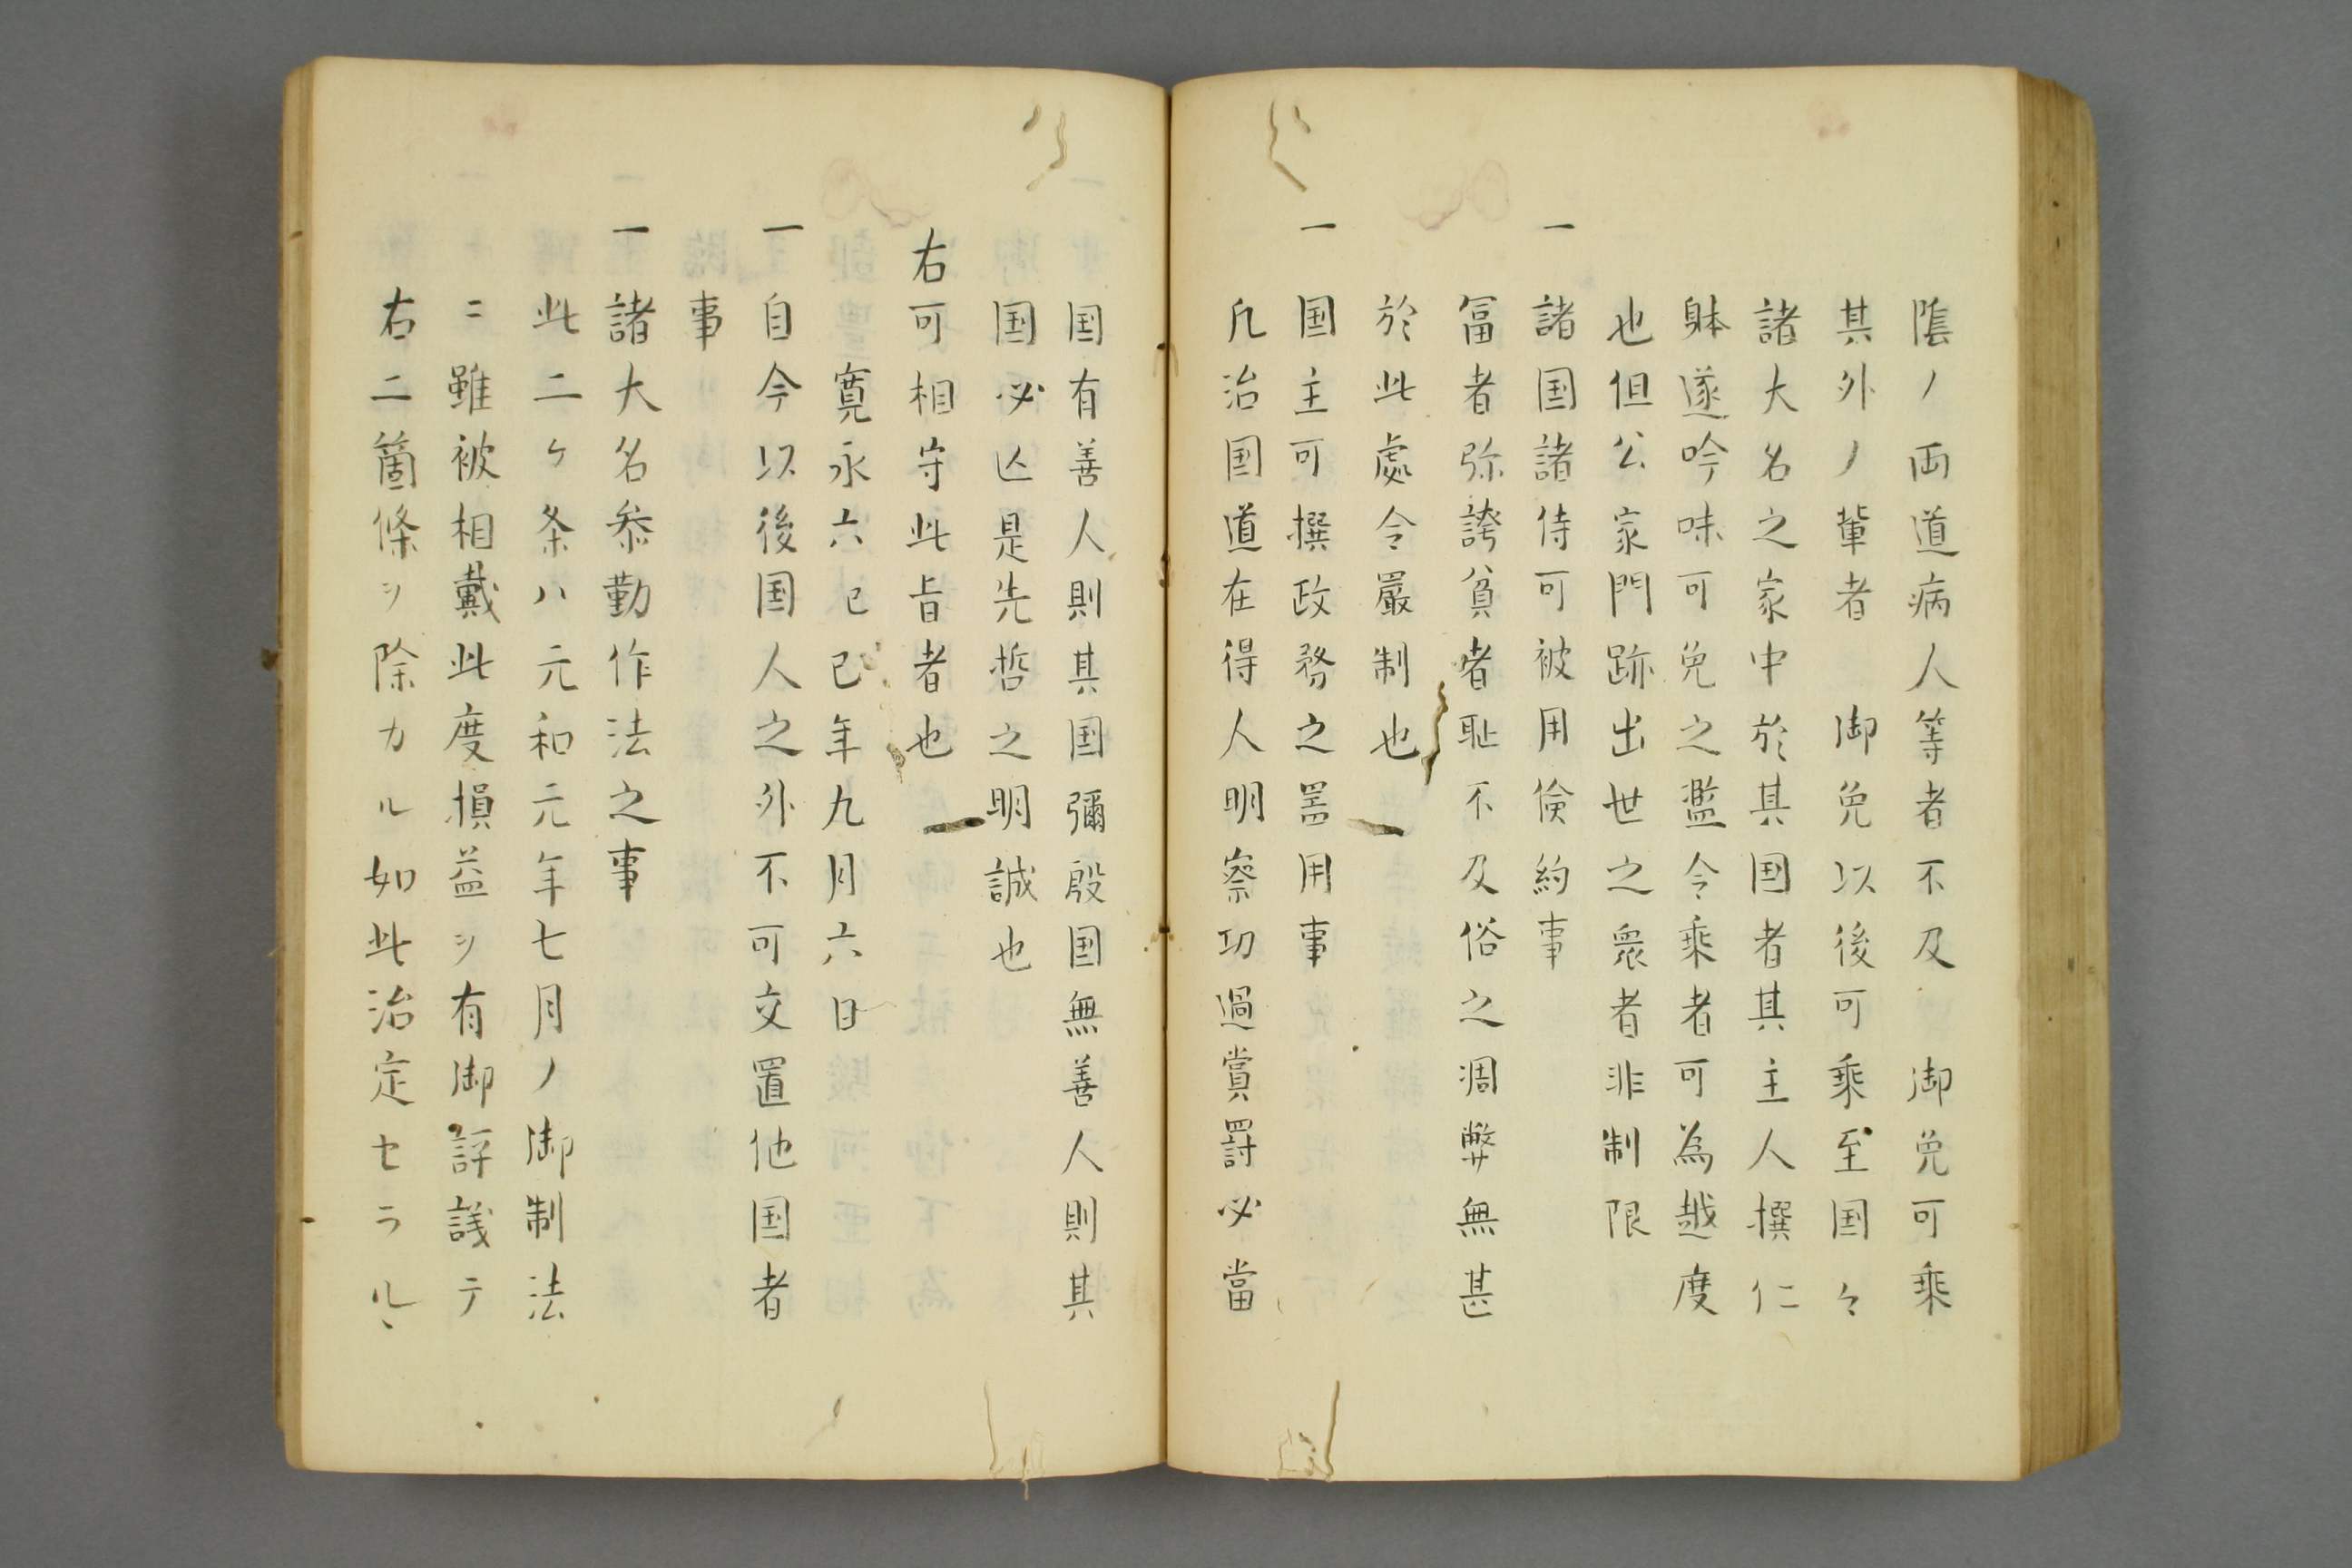 陰ノ両道病人等者不及　御免可乗
其外ノ輩者　御免以後可乗至国々
諸大名之家中於其国者其主人撰仁
躰遂吟味可免之濫令乗者可為越度
也但公家門跡出世之衆者非制限
一　諸国諸侍可被用倹約事
冨者弥誇貧者耻不及俗之凋弊無甚
於此處令嚴制也
一　国主可撰政務之噐用事
凡治国道在得人明察功過賞罸必當
国有善人則其国彌殷国無善人則其
国必亾是先哲之明誠也
右可相守此旨者也
寛永六己巳年九月六日
一　自今以後国人之外不可交置他国者
事
一　諸大名叅勤作法之事
此二ケ条ハ元和元年七月ノ御制法
ニ雖被相戴此度損益ヲ有御評議テ
右二箇條ヲ除カル如此治定セラル、